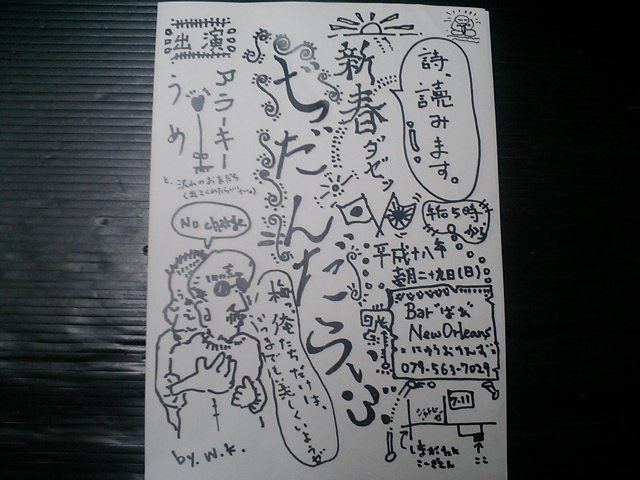 詩、読みます。
新春ダゼッ
ぢだんだらいぶ
午后5時から
平成十八年
壱月二十九日(日)
Bar ばぁ
New Orleans
にゅうおりんず
079-563-7029
7-11
ここ
出演
アラーキー
うめ
と、沢山のお友だち
No charge
梅、俺たちだけは、
いつまでも、美しくいようぜ
by. W.K.